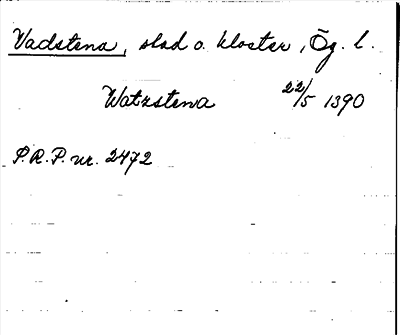 Vadstena, stad o. kloster, Ög. l.
Watzstena 22/5 1390
P.R.P. nr. 2472